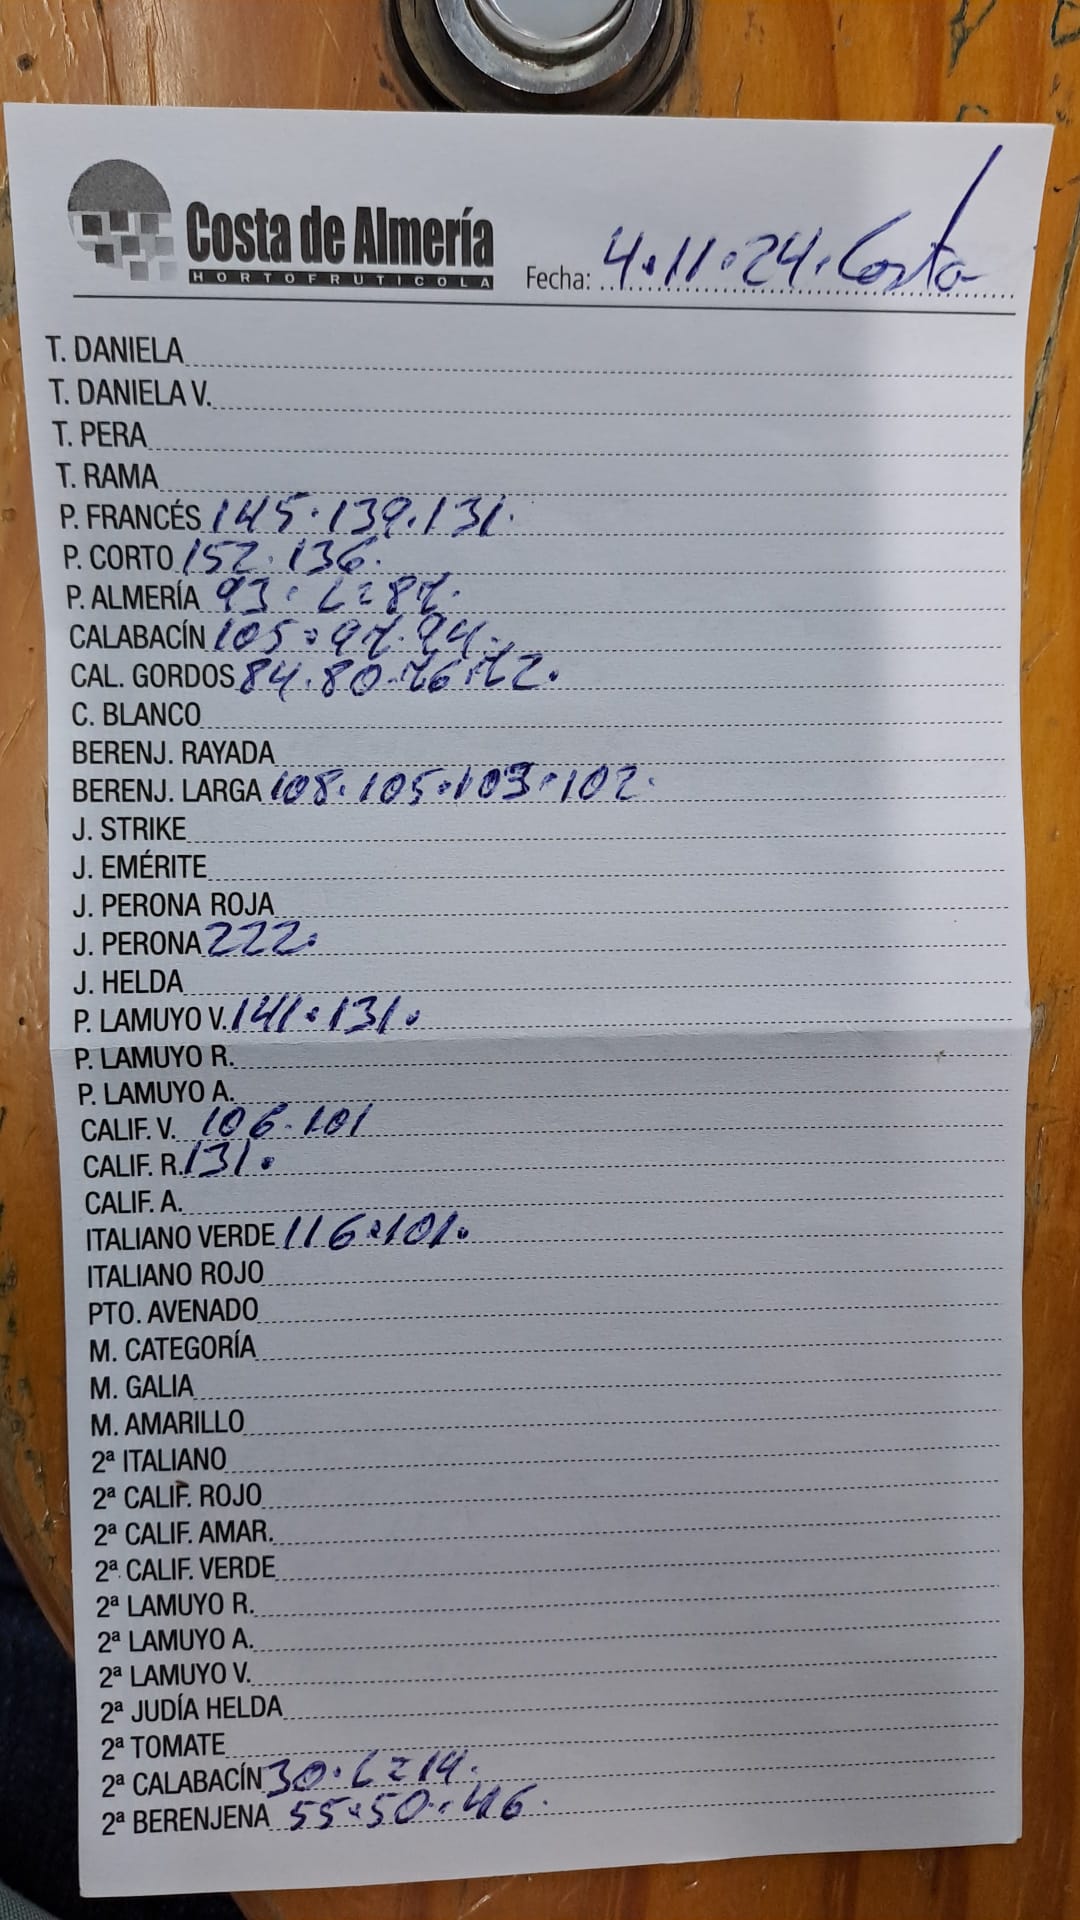 Costa de Almería
HORTOFRUTICOLA
Fecha: 4.11.24. Costa
T. DANIELA
T. DANIELA V.
T. PERA
T. RAMA
P. FRANCÉS 145.139.131.
P. CORTO 152.136.
P. ALMERÍA 93. L=87.
CALABACÍN 105.97.94.
CAL. GORDOS 84.80.76.72.
C. BLANCO
BERENJ. RAYADA
BERENJ. LARGA 108.105.103.102.
J. STRIKE
J. EMÉRITE
J. PERONA ROJA
J. PERONA 222.
J. HELDA
P. LAMUYO V. 141.131.
P. LAMUYO R.
P. LAMUYO A.
CALIF. V. 106.101
CALIF. R. 131.
CALIF. A.
ITALIANO VERDE 116.101.
ITALIANO ROJO
PTO. AVENADO
M. CATEGORÍA
M. GALIA
M. AMARILLO
2ª ITALIANO
2ª CALIF. ROJO
2ª CALIF. AMAR.
2ª CALIF. VERDE
2ª LAMUYO R.
2ª LAMUYO A.
2ª LAMUYO V.
2ª JUDÍA HELDA
2ª TOMATE
2ª CALABACÍN 30. L=14.
2ª BERENJENA 55.50.46.